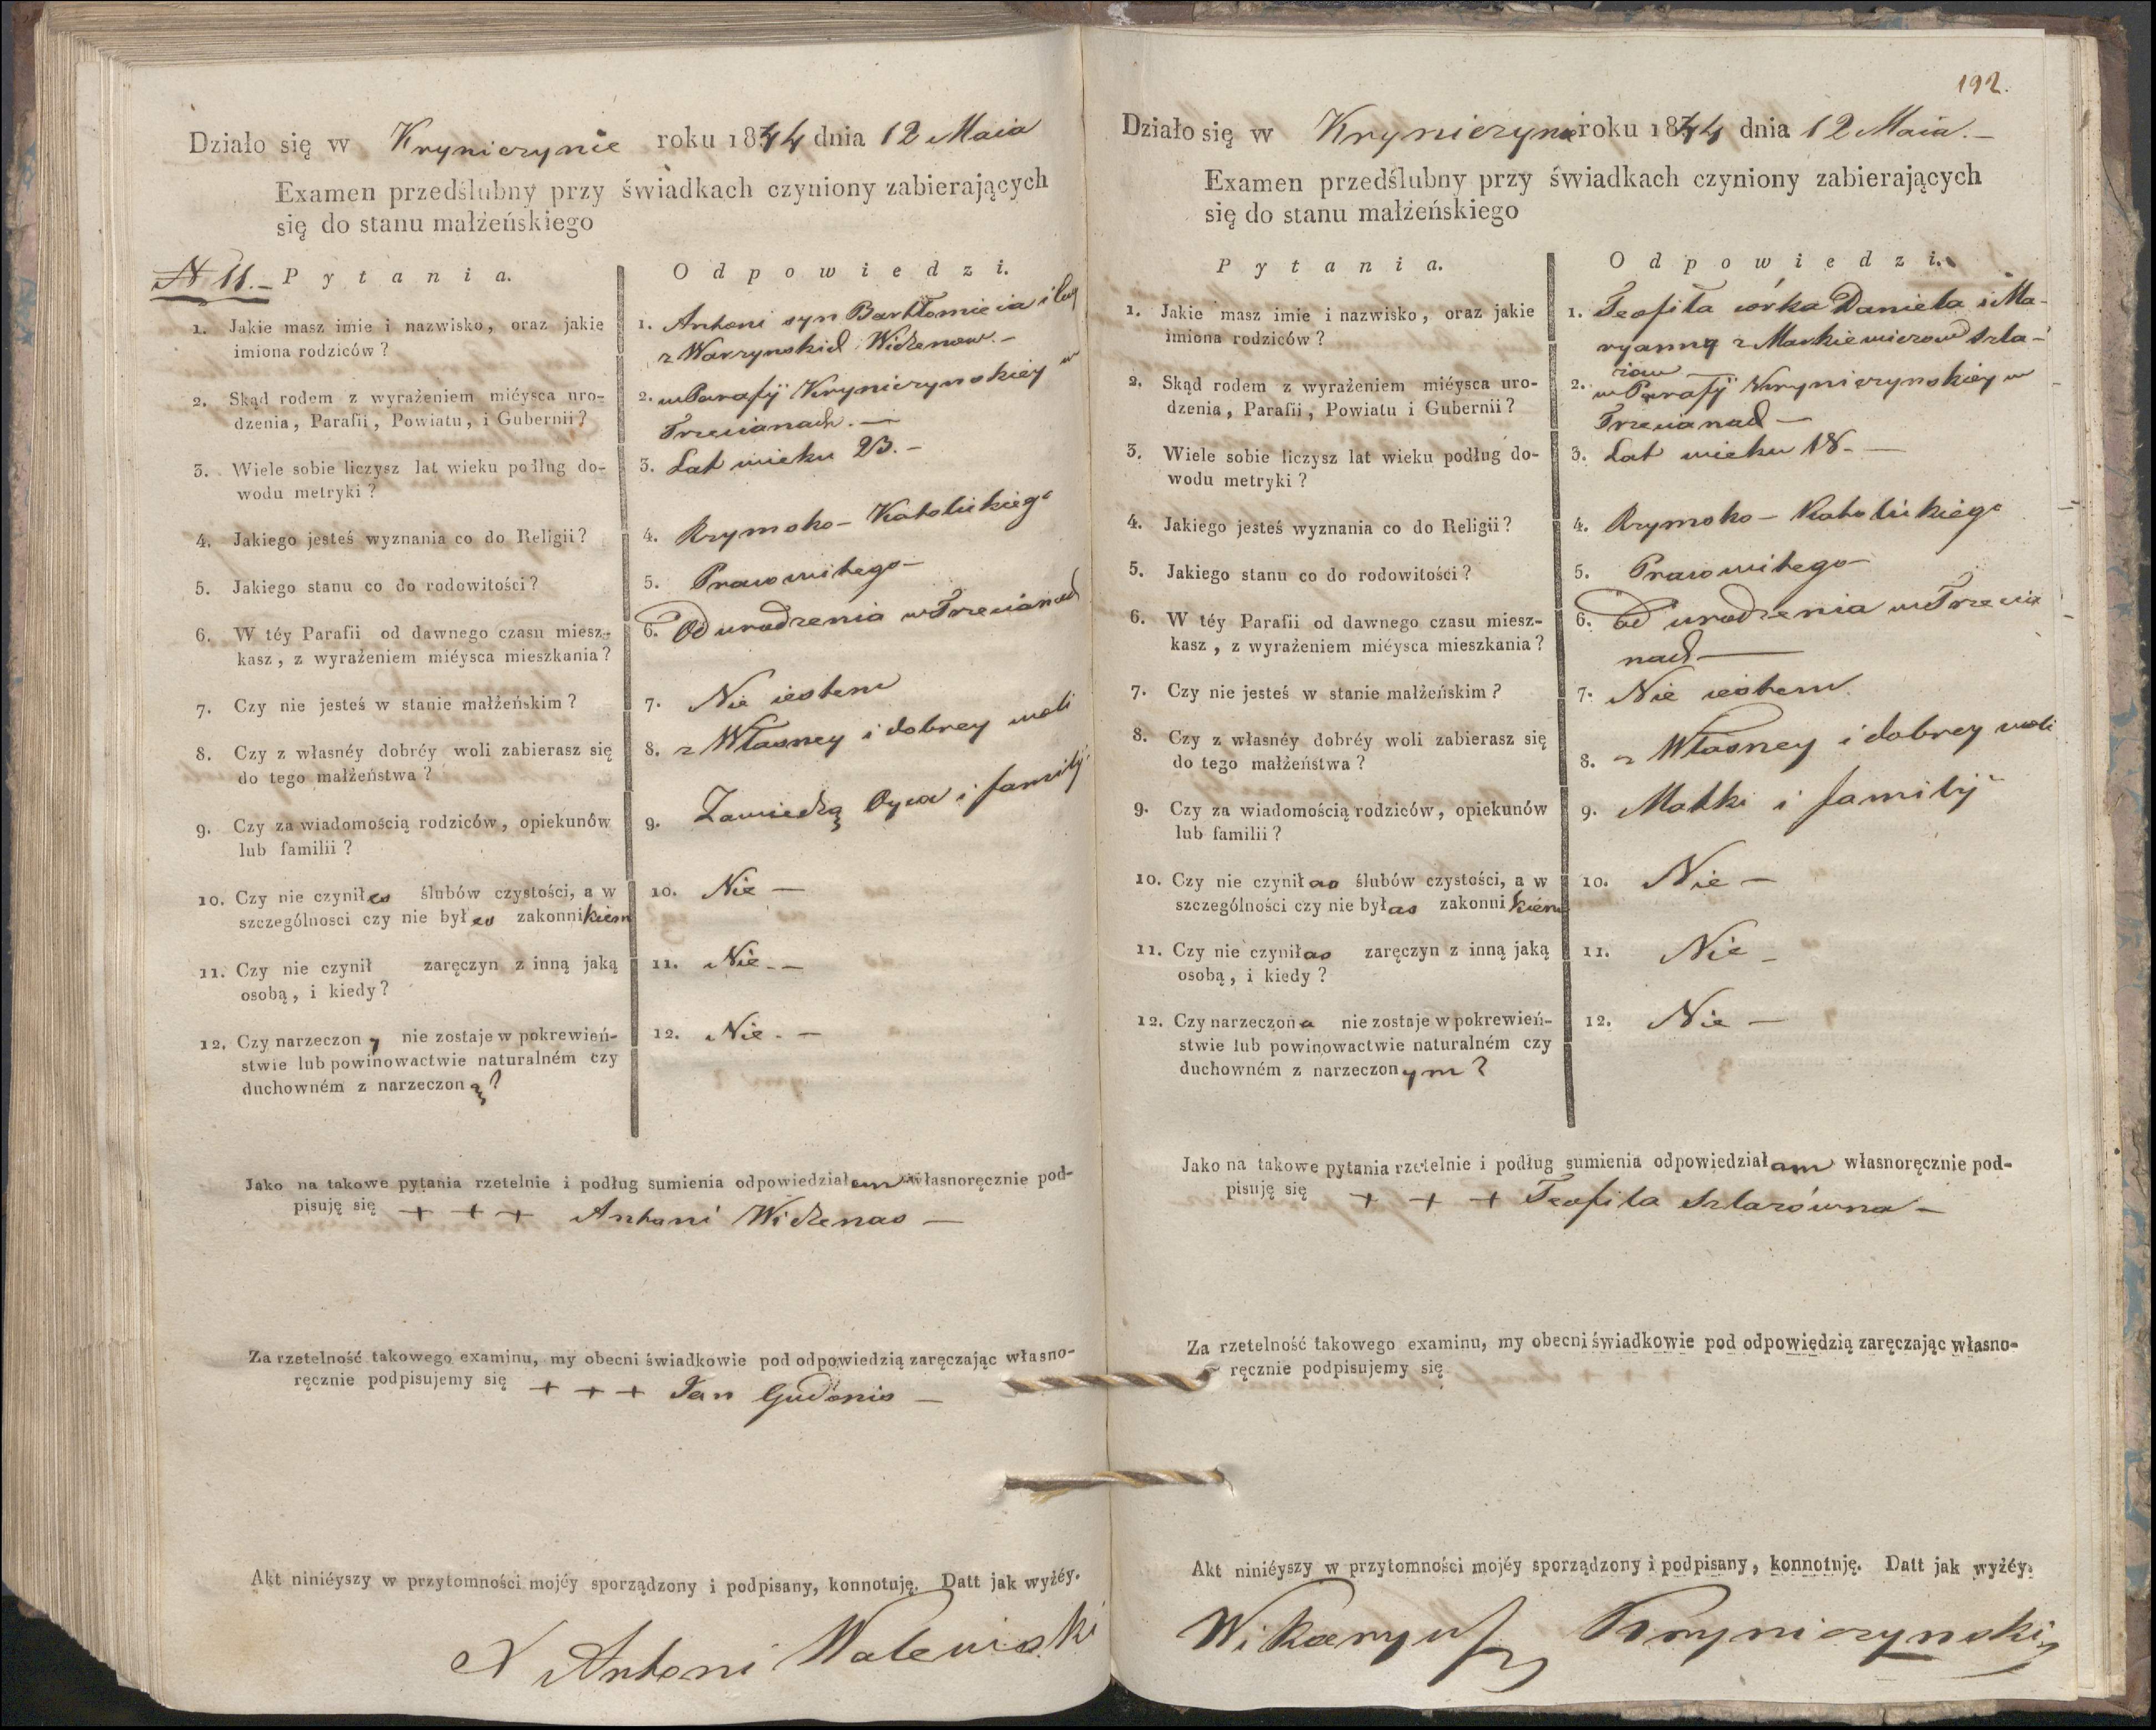 Działo się w Kryniczynie roku 1844 dnia 12 Maia
Examen przedślubny przy świadkach czyniony zabierających
się do stanu małżeńskiego
N 11.- Pytania.
1. Jakie masz imie i nazwisko, oraz jakie
imiona rodziców?
2. Skąd rodem z wyrażeniem miéysca uro-
dzenia, Parafii, Powiatu, i Gubernii?
3. Wiele sobie liczysz lat wieku podług do-
wodu metryki?
4. Jakiego jesteś wyznania co do Religii?
5. Jakiego stanu co do rodowitości?
6. W téy Parafii od dawnego czasu miesz-
kasz, z wyrażeniem miéysca mieszkania?
7. Czy nie jesteś w stanie małżeńskim?
8. Czy z własnéy dobréy woli zabierasz się
do tego małżeństwa?
9. Czy za wiadomością rodziców, opiekunów
lub familii?
10. Czy nie czyniłes ślubów czystości, a w
szczególnosci czy nie byłes zakonnikiem
11. Czy nie czynił zaręczyn z inną jaką
osobą, i kiedy?
12. Czy narzeczony nie zostaje w pokrewień-
stwie lub powinowactwie naturalném czy
duchowném z narzeczoną?
Odpowiedzi.
1. Antoni syn Bartłomieia i
z Warzynskich Widzenow.-
2. w Parafij Kryniczynskiey w
Trzecianach.-
3. Lat wieku 23.-
4. Rzymsko-Katolickiego
5. Prawowitego-
6. Od urodzenia w Trzecianach
7. Nie iestem
8. z Własney i dobrey woli
9. Zawiedzą Oyca i familij
10. Nie-
11. Nie.-
12. Nie.-
Jako na takowe pytania rzetelnie i podług sumienia odpowiedziałem własnoręcznie pod-
pisuję się + + + Antoni Widzenas-
Za rzetelność takowego examinu, my obecni świadkowie pod odpowiedzią zaręczając własno-
ręcznie podpisujemy się + + + Jan Gudonis-
Akt niniéyszy w przytomności mojéy sporządzony i podpisany, konnotuję. Datt jak wyżéy.
X Antoni Walewiski
192.
Działo się w Kryniczynie roku 1844 dnia 12 Maia.-
Examen przedślubny przy świadkach czyniony zabierających
się do stanu małżeńskiego
Pytania.
1. Jakie masz imie i nazwisko, oraz jakie
imiona rodziców?
2. Skąd rodem z wyrażeniem miéysca uro-
dzenia, Parafii, Powiatu i Gubernii?
3. Wiele sobie liczysz lat wieku podług do-
wodu metryki?
4. Jakiego jesteś wyznania co do Religii?
5. Jakiego stanu co do rodowitości?
6. W téy Parafii od dawnego czasu miesz-
kasz, z wyrażeniem miéysca mieszkania?
7. Czy nie jesteś w stanie małżeńskim?
8. Czy z własnéy dobréy woli zabierasz się
do tego małżeństwa?
9. Czy za wiadomością rodziców, opiekunów
lub familii?
10. Czy nie czyniłas ślubów czystości, a w
szczególności czy nie byłas zakonnikiem
11. Czy nie czyniłas zaręczyn z inną jaką
osobą, i kiedy?
12. Czy narzeczona nie zostaje w pokrewień-
stwie lub powinowactwie naturalném czy
duchowném z narzeczonym?
Odpowiedzi.
1. Teofila córka Daniela i Ma-
ryanny z Markiewiczow Szla-
zow
2. w Parafij Kryniczynskiey w
Trzecianach-
3. Lat wieku 18.-
4. Rzymsko-Katolickiego
5. Prawowitego-
6. Od urodzenia w Trzecia
nach-
7. Nie iestem
8. z Własney i dobrey woli
9. Matki i familij
10. Nie-
11. Nie-
12. Nie-
Jako na takowe pytania rzetelnie i podług sumienia odpowiedziałam własnoręcznie pod-
pisuję się + + + Teofila Szlazówna-
Za rzetelność takowego examinu, my obecni świadkowie pod odpowiedzią zaręczając własno-
ręcznie podpisujemy się
Akt niniéyszy w przytomności mojéy sporządzony i podpisany, konnotuję. Datt jak wyżéy.
Wikaryusz Kryniczynski